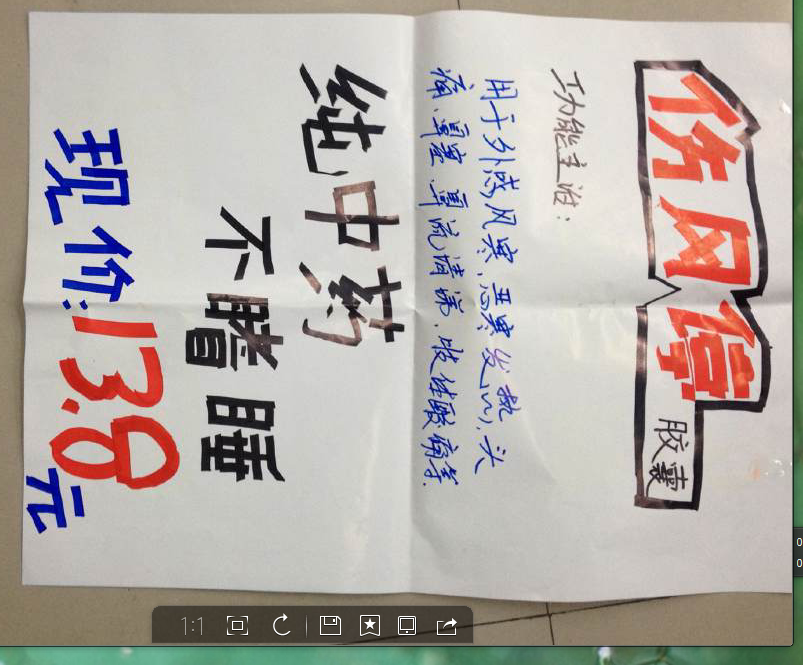 伤风停
胶囊
功能主治:
用于外感风寒、恶寒发热、头
痛、鼻塞、鼻流清涕、肢体酸痛等.
纯中药
不瞌睡
现价:13.8元
1:1